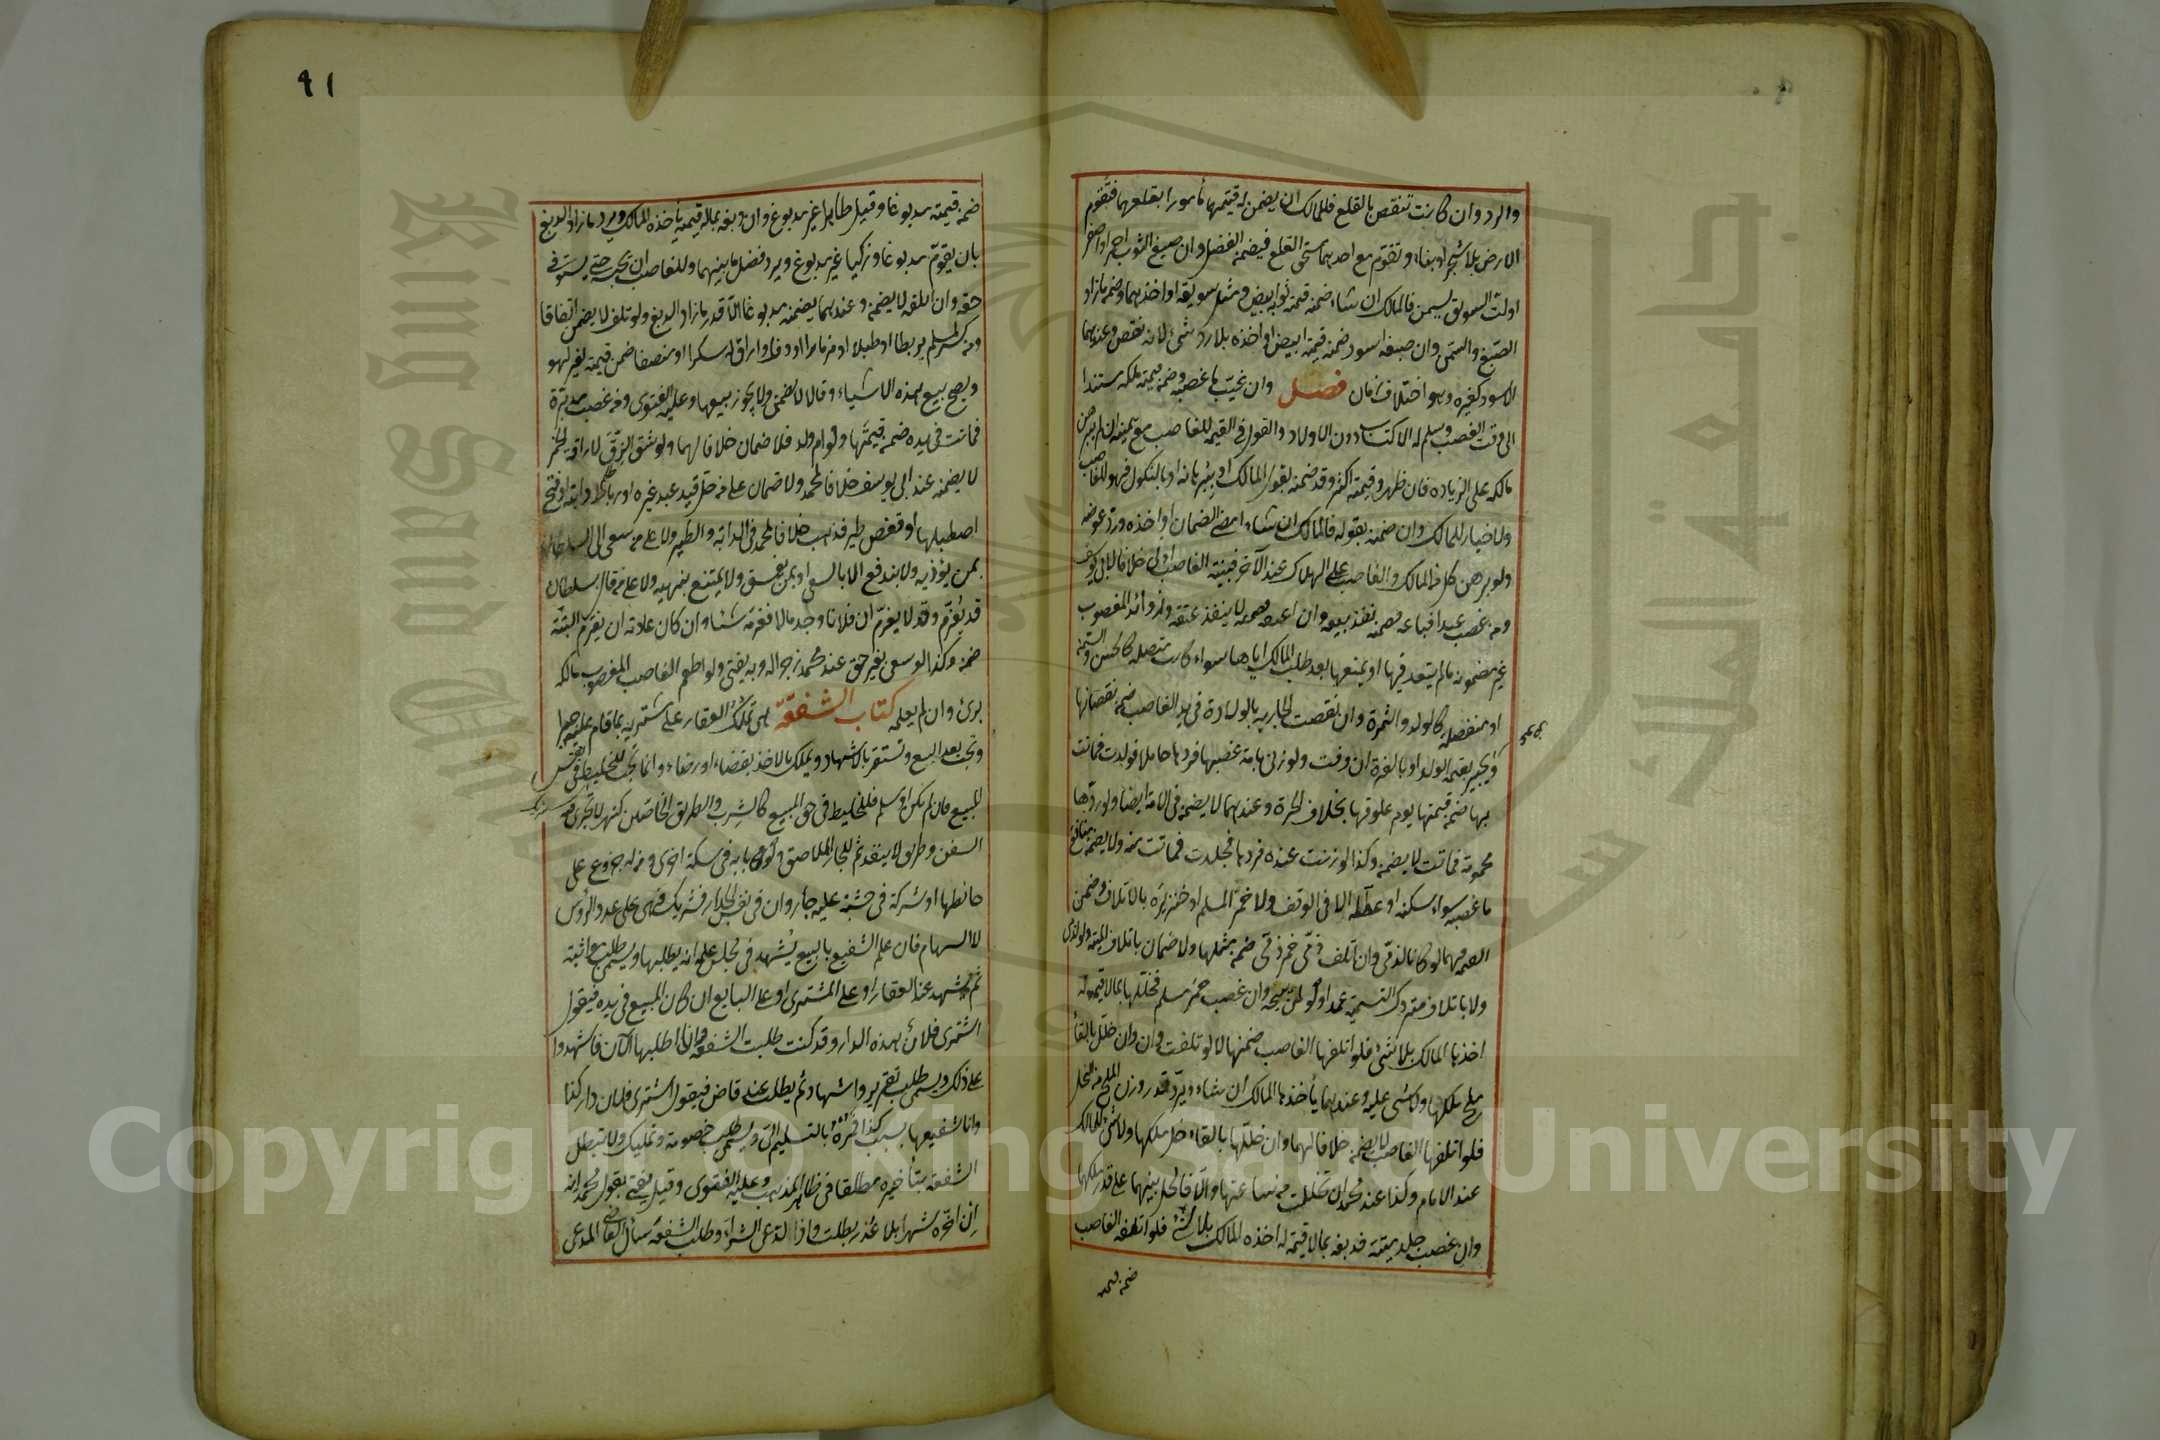 والرد وان كانت تنقص بالقلع فللمالك ان يضمن له قيمتهما مأمورا بقلعهما فتقوم
الارض بلا شجر او بناء وتقوم مع احدهما مستحق القلع فيضمن الفضل وان صبغ الثوب احمر او اصفر
او لتّ السويق بسمن فالمالك ان شاء ضمنه قيمة ثوبه ابيض ومثل سويقه او اخذهما وضمن ما زاد
الصبغ والسمن وان صبغه اسود ضمنه قيمته ابيض او اخذه بلا رد شئ لانه نقص وعندهما
الاسود كغيره وهو اختلاف زمان فصل وان غيّب ما غصبه وضمن قيمته ملكه مستندا
الى وقت الغصب وسلم له الاكساب دون الاولاد والقول في القيمة للغاصب مع يمينه ان لم يبرهن
مالكه على الزيادة فان ظهر وقيمته اكثر وقد ضمنه بقول المالك او ببرهانه او بالنكول فهو للغاصب
ولا خيار للمالك وان ضمنه بقوله فالمالك ان شاء امضى الضمان او اخذه ورد عوضه
ولو برهن كل من المالك والغاصب على الهلاك عند الآخر فبينة الغاصب اولى خلافا لابي يوسف
ومن غصب عبدا فباعه فضمنه نفذ بيعه وان اعتقه فضمنه لا ينفذ عتقه وزوائد المغصوب
غير مضمونة ما لم يتعد فيها او يمنعها بعد طلب المالك اياها سواء كانت متصلة كالحسن والسمن
او منفصلة كالولد والثمرة وان نقصت الجارية بالولادة في يد الغاصب ضمن نقصانها
ويجبر بقيمة الولد او بالغرة ان وفت ولو زنى بامة غصبها فردها حاملا فولدت فماتت
بها ضمن قيمتها يوم علوقها بخلاف الحرة وعندهما لا يضمن في الامة ايضا ولو ردها
محمومة فماتت لا يضمن وكذا لو زنت عنده فردها فجلدت فماتت منه ولا يضمن منافع
ما غصبه سواء سكنه او عطله الا في الوقف ولا خمر المسلم او خنزيره بالاتلاف وضمن
القيمة فيهما لو كانا لذمي وان اتلف ذمي خمر ذمي ضمن بمثلها ولا ضمان باتلاف الميتة ولو لذمي
ولا باتلاف متروك التسمية عمدا ولو لمن يبيحه وان غصب خمر مسلم فخللها بما لا قيمة له
اخذها المالك بلا شئ فلو اتلفها الغاصب ضمنها لا لو تلفت وان خلل بالقاء
ملح ملكها ولا شئ عليه وعندهما يأخذها المالك ان شاء ويرد قدر وزن الملح من الخل
فلو اتلفها الغاصب لا يضمن خلافا لهما وان خللها بالقاء خل ملكها ولا شئ للمالك
عند الامام وكذا عند محمد ان تخللت من ساعتها والا فالخل بينهما على قدر ملكهما
وان غصب جلد ميتة فدبغه بما لا قيمة له اخذه المالك بلا شئ فلو اتلفه الغاصب
ضمن قيمته
٩١
ضمن قيمته مدبوغا وقيل طاهرا غير مدبوغ وان دبغه بماله قيمة يأخذه المالك ويرد ما زاد الدبغ
بان يقوّم مدبوغا وزكيا غير مدبوغ ويرد فضل ما بينهما وللغاصب ان يحبسه حتى يستوفي
حقه وان اتلفه لا يضمن وعندهما يضمنه مدبوغا الا قدر ما زاد الدبغ ولو تلف لا يضمن اتفاقا
ومن كسر لمسلم بربطا او طبلا او مزمارا او دفا او اراق له سكرا او منصفا ضمن قيمته لغير لهو
ويصح بيع هذه الاشياء وقالا لا يضمن ولا يجوز بيعها وعليه الفتوى ومن غصب مدبرة
فماتت في يده ضمن قيمتها ولو ام ولد فلا ضمان خلافا لهما ولو شق الزق لاراقة الخمر
لا يضمنه عند ابي يوسف خلافا لمحمد ولا ضمان على من حل قيد عبد غيره او رباط دابته او فتح
اصطبلها او قفص طير فذهب خلافا لمحمد في الدابة والطير ولا على من سعى الى السلطان
بمن يؤذيه ولا يندفع الا بالسعي او بمن يفسق ولا يمتنع بنهيه ولا على من قال لسلطان
قد يغرّم وقد لا يغرّم ان فلانا وجد مالا فغرمه شئا وان كان عادته ان يغرم البتة
ضمن وكذا لو سعى بغير حق عند محمد زجرا له وبه يفتى ولو اطعم الغاصب المغصوب مالكه
برئ وان لم يعلمه كتاب الشفعة هى تملك العقار على مشتريه بما قام عليه جبرا
وتجب بعد البيع وتستقر بالاشهاد ويملك بالاخذ بقضاء او رضاء وانما تجب للخليط في نفس
المبيع فان لم يكن او سلم فللخليط في حق المبيع كالشرب والطريق الخاصين كنهر لا تجرى فيه
السفن وطريق لا ينفذ ثم للجار الملاصق ولو بابه في سكة اخرى ومن له جذوع على
حائطها او شركة في خشبة عليه جار وان في نفس الجدار فشريك وهى على عدد الرؤس
لا السهام فان علم الشفيع بالبيع يشهد في مجلس علمه انه يطلبها ويسمى طلب مواثبة
ثم يشهد عند العقار او على المشترى او على البايع ان كان المبيع في يده فيقول
اشترى فلان هذه الدار وقد كنت طلبت الشفعة وانا اطلبها الآن فاشهدوا
على ذلك ويسمى طلب تقرير واشهاد ثم يطلب عند قاض فيقول اشترى فلان دار كذا
وانا شفيعها بسبب كذا فمره بالتسليم الى ويسمى طلب خصومة وتمليك ولا تبطل
الشفعة بتأخيره مطلقا في ظاهر المذهب وعليه الفتوى وقيل يفتى بقول محمد انه
ان اخره شهرا بلا عذر بطلت واذا ادعى الشراء وطلب الشفعة سأل القاضى المدعى
Copyright © King Saud University
King Saud University
جامعة الملك سعود